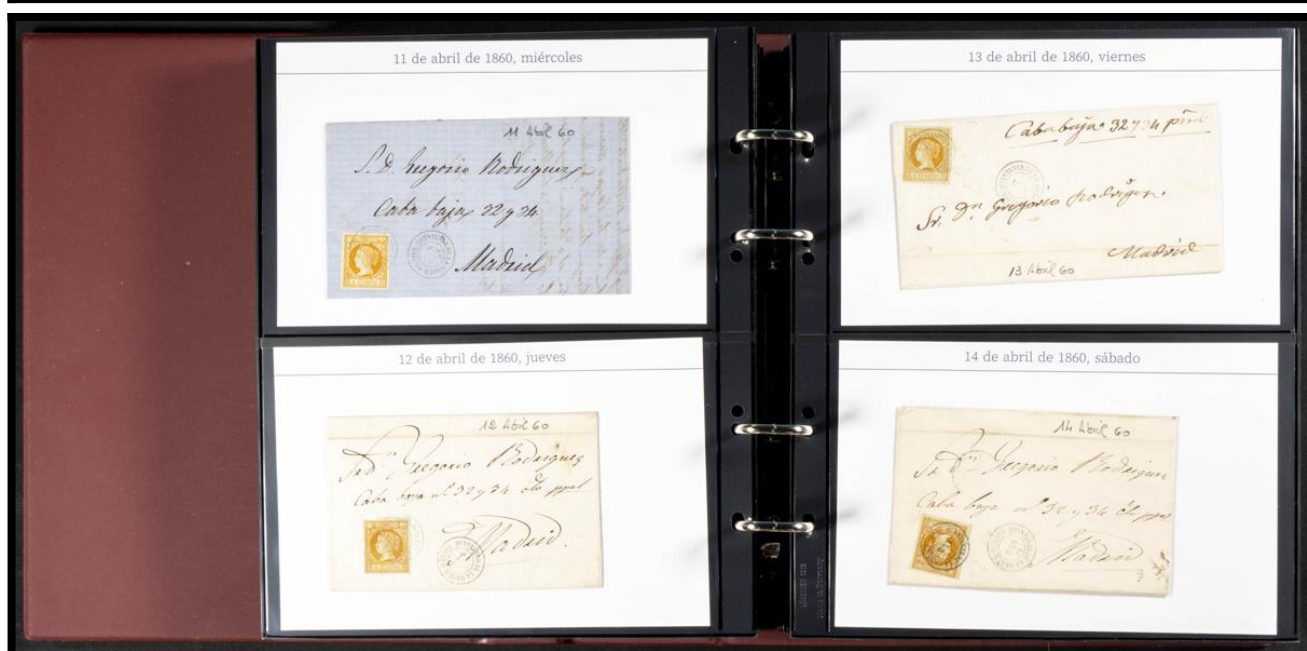 11 de abril de 1860, miércoles
11 Abril 60
S. D. Gregorio Rodriguez
Caba baja 32 y 34
Madrid
12 de abril de 1860, jueves
12 Abril 60
Gregorio Rodriguez
Caba baja nº 32 y 34 ppal
Madrid.
13 de abril de 1860, viernes
Caba baja 32 y 34 pral
Sr. Dn Gregorio Rodriguez
Madrid
13 Abril 60
14 de abril de 1860, sábado
14 Abril 60
Gregorio Rodriguez
Caba baja nº 32 y 34 ppal
Madrid